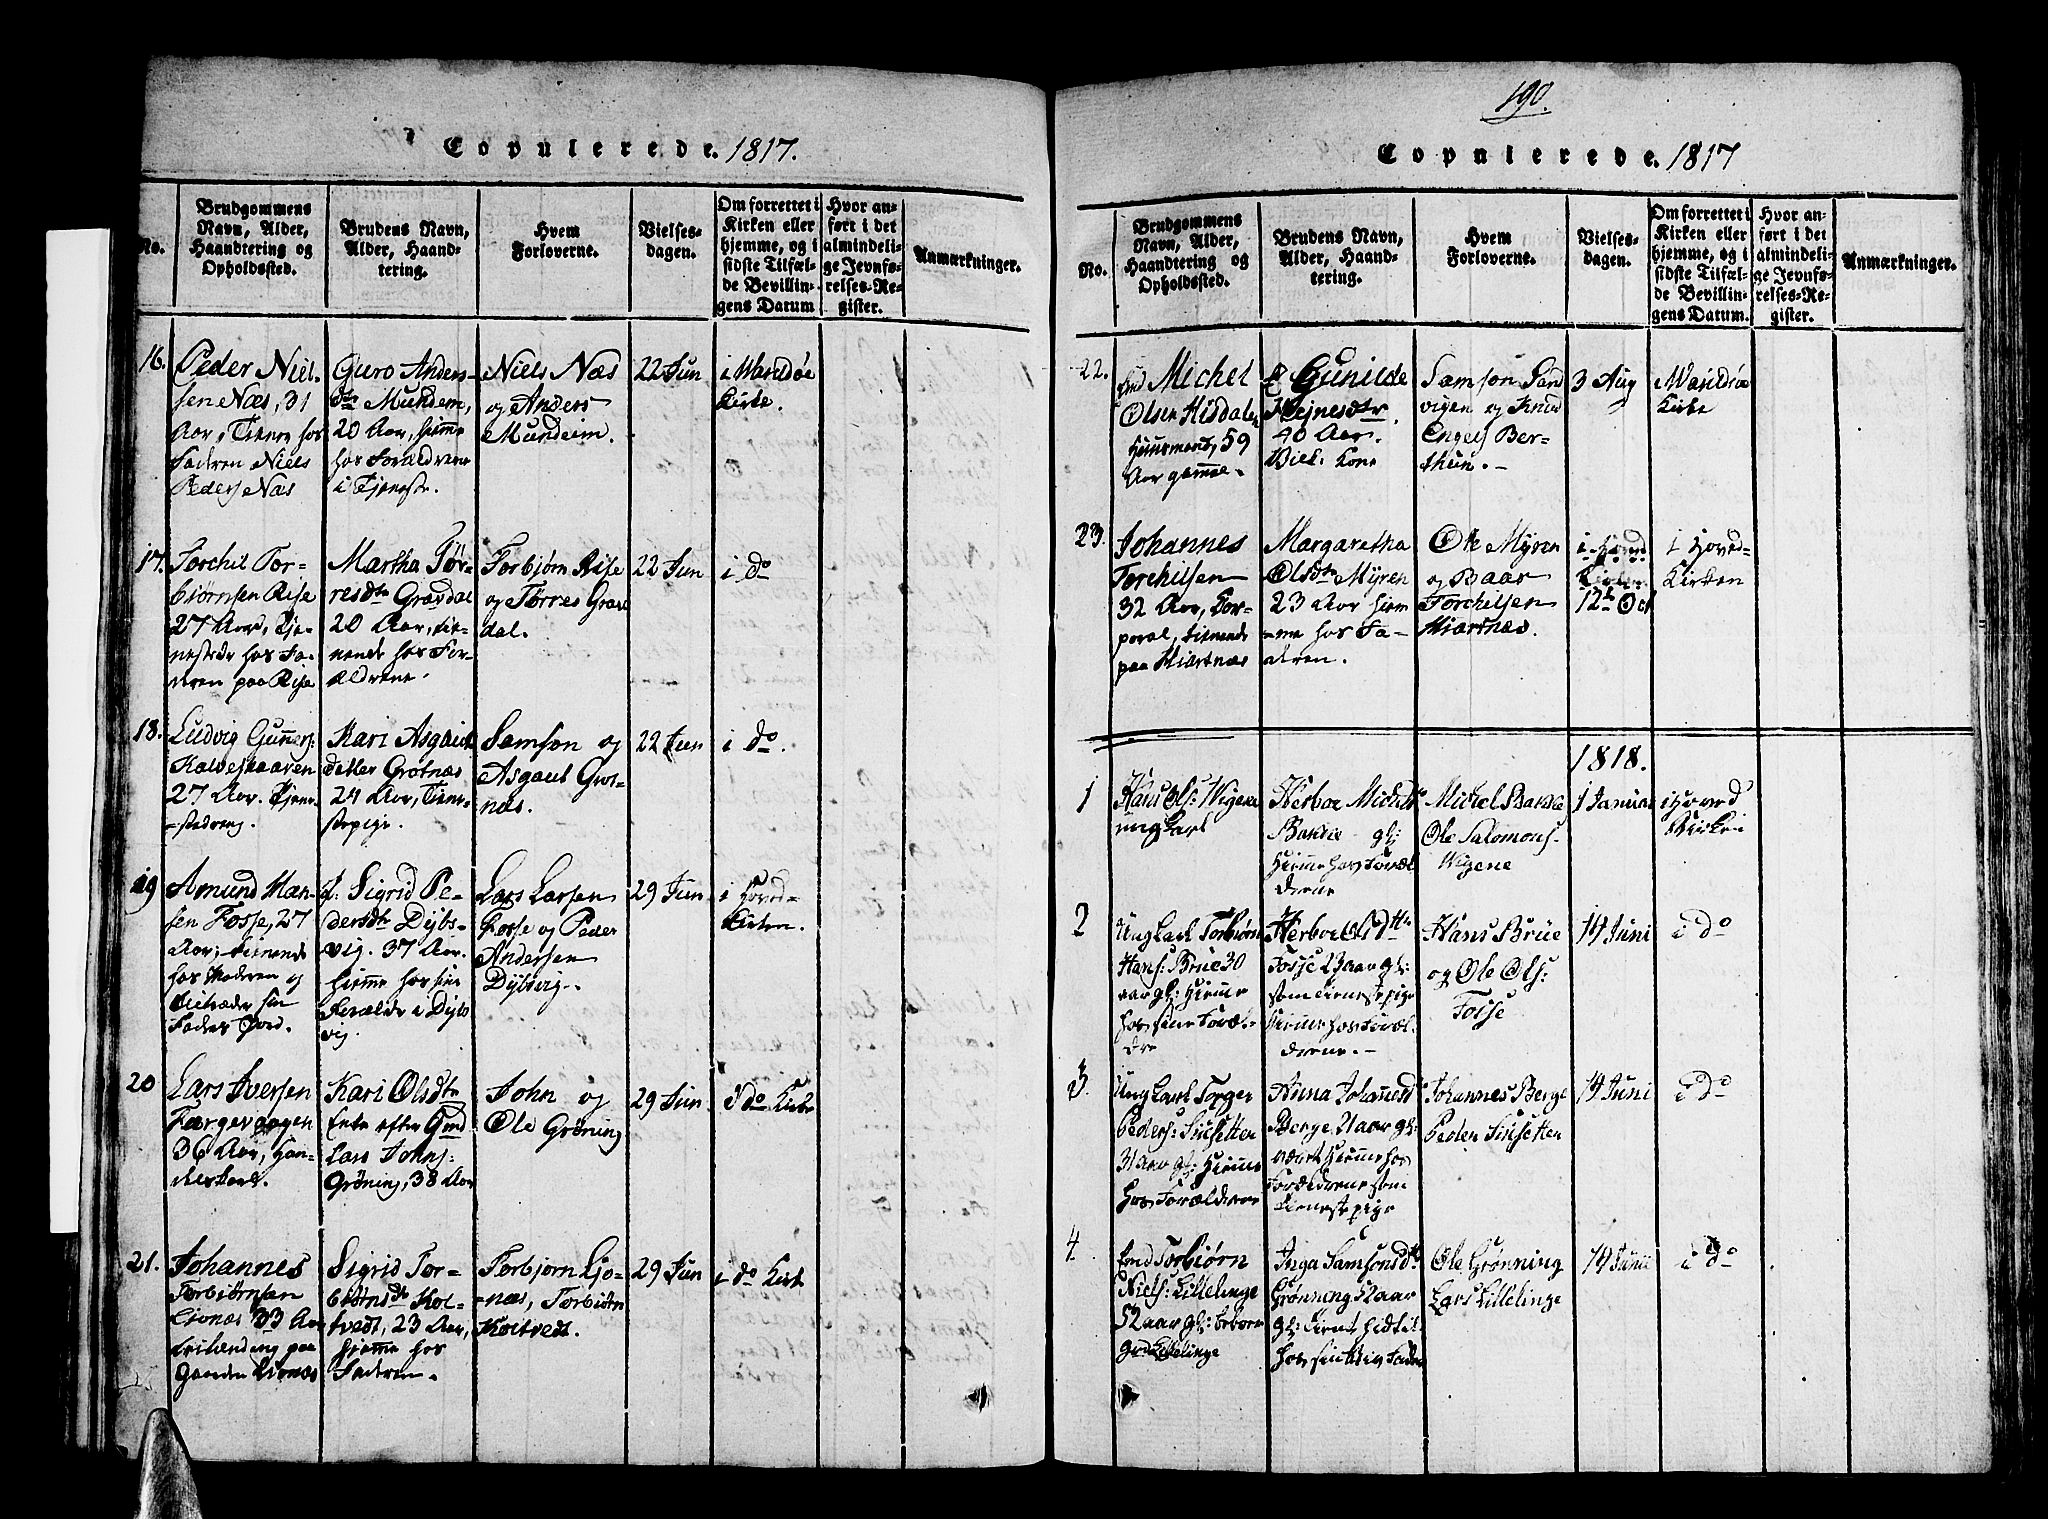 190.
Copulerede. 1817.
No.
Brudgommens
Navn, Alder,
Haandtering og
Opholdssted.
Brudens Navn,
Alder, Haand-
tering.
Hvem
Forloverne.
Vielses-
dagen.
Om forrettet i
Kirken eller
hjemme, og i
sidste Tilfæl-
de Bevillin-
gens Datum
Hvor an-
ført i det
almindeli-
ge Jevnfø-
relses-Re-
gister.
Anmærkninger.
16.
Peder Niel-
sen Næs, 31
Aar, Tiener hos
Faderen Niels
Peders Næs
Guro Anders-
dtr Mundem,
20 Aar, hiemme
hos Forældrene
i Tjeneste.
Niels Næs
og Anders
Mundeim.
22 Jun
i
Kirke.
17.
Torchil Tor-
biørnsen Rise
27 Aar, Tje-
nestedr hos Fa-
deren paa Rise
Martha Tør-
resdtr Gravdal
20 Aar, tie-
nende hos For-
ældrene.
Torbjørn Rise
og Tørres Grav
dal.
22 Jun
i do
18.
Ludvig Guners:
Kalveskaaren
27 Aar. Tjene-
stedreng.
Kari Asgauts
datter Grøtnæs
24 Aar, Tiene-
stepige.
Samson og
Asgaut Grøt-
næs.
22 Jun
i do.
19
Amund Han-
sen Fosse, 27
Aar, tienende
hos Moderen og
tiltræder sin
Faders Gaard.
P: Sigrid Pe-
dersdtr Dybs-
vig. 37 Aar.
hiemme hos sine
Forældre i Dybs
vig.
Lars Larsen
Fosse og Peder
Andersen
Dybsvig.
29 Jun
i Hoved-
Kirken.
20
Lars Iversen
Færgevaagen
36 Aar, Han-
delskarl.
Kari Olsdtr
Enke efter Gmd
Lars Johns:
Grøning, 38 Aar
John og
Ole Grøning
29 Jun.
i do Kirke
21.
Johannes
Torbiørnsen
Lionæs 33 Aar
paa
Gaarden Lionæs
Sigrid Tor-
biørnsdtr Kol-
tvedt, 23 Aar,
hjemme hos
Faderen.
Torbjorn Ljo-
næs, Torbiørn
Koltvedt.
29 Jun
i do Kirke
Copulerede. 1817
No.
Brudgommens
Navn, Alder,
Haandtering og
Opholdssted.
Brudens Navn,
Alder, Haand-
tering.
Hvem
Forloverne.
Vielses-
dagen.
Om forrettet i
Kirken eller
hjemme, og i
sidste Tilfæl-
de Bevillin-
gens Datum.
Hvor an-
ført i det
almindeli-
ge Jevnfø-
relses-Re-
gister.
Anmærkninger.
22.
Emd Michel
Olsen Hisdalen
Huusmand, 59
Aar gammel.
P Gunilde
Hejnesdtr.
40 Aar.
Kone
Samson Sand
vigen og Knud
Engels Ber-
thun.
3 Aug
Kirke
23.
Johannes
Torchilsen
32 Aar, Cor-
poral, tienende
paa Hiartnæs
Margaretha
Olsdtr Myren
23 Aar hiem
me hos Fa-
deren.
Ole Myren
og Baar
Torchilsen
Hiartnæs.
i Hoved
Kirken
12te Oct
i Hoved-
Kirken
1818.
1
Hans Ols: Wigene
ungkarl
Herboe Michelsd
Bakke gl:
Hiemme hos Foræl
drene
Michel Bakke
Ole Salomons-
Wigene
1 Januar
i Hoved
Kirken
2
Ungkarl Torbiørn
Hans: Brue 30
aar gl: Hiemme
hos sine Foræl-
dre
Herboe Olsdtr
Fosse 23 aar gl:
som tienestepige
hiemme hos Foræl
drene.
Hans Brue
og Ole Ols:
Fosse
14 Juni
i do
3.
Ungkarl Torger
Peders: Siusetter
31 aar gl: Hiemme
hos Forældrene
Anna Johanesd
Berge 21 aar gl:
været hiemme hos
Forældrene som
tienestepige
Johannes Berge
Peder Siusetter
14 Juni
i do
4.
Emd Torbiørn
Niels: Lillelinge
52 aar gl:
Grd Lillelinge
Inga Samsonsdtr
Grønning 52 aar
gl: tient hidtil
hos sin
Ole Grønning
Lars Lillelinge
14 Junii
i do